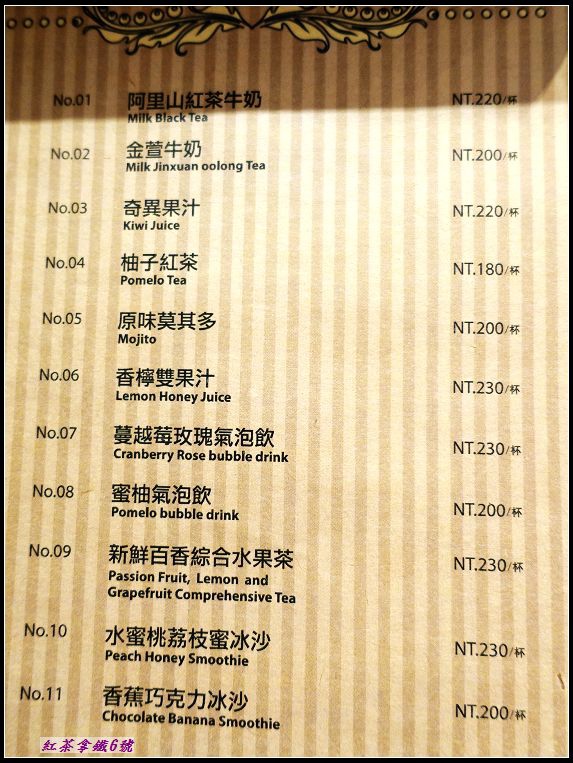 No.01 阿里山紅茶牛奶 NT.220/杯
Milk Black Tea
No.02 金萱牛奶 NT.200/杯
Milk Jinxuan oolong Tea
No.03 奇異果汁 NT.220/杯
Kiwi Juice
No.04 柚子紅茶 NT.180/杯
Pomelo Tea
No.05 原味莫其多 NT.200/杯
Mojito
No.06 香檸雙果汁 NT.230/杯
Lemon Honey Juice
No.07 蔓越莓玫瑰氣泡飲 NT.230/杯
Cranberry Rose bubble drink
No.08 蜜柚氣泡飲 NT.200/杯
Pomelo bubble drink
No.09 新鮮百香綜合水果茶 NT.230/杯
Passion Fruit, Lemon and
Grapefruit Comprehensive Tea
No.10 水蜜桃荔枝蜜冰沙 NT.230/杯
Peach Honey Smoothie
No.11 香蕉巧克力冰沙 NT.200/杯
Chocolate Banana Smoothie
紅茶拿鐵6號